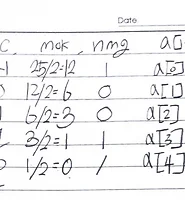 Date
C. mok nmg a[
-1 25/2=12 1 a[0]
0 12/2=6 0 a[1]
1 6/2=3 0 a[2]
2 3/2=1 1 a[3]
1/2=0 1 a[4]